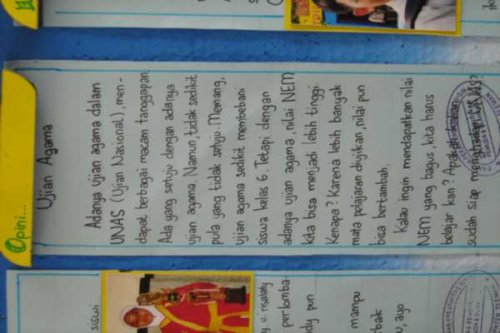 Opini...
Ujian Agama
Adanya ujian agama dalam
UNAS (Ujian Nasional), men-
dapat berbagai macam tanggapan.
Ada yang setuju dengan adanya
ujian agama, Namun, tidak sedikit
pula yang tidak setuju. Memang,
ujian agama sedikit membebani
siswa kelas 6. Tetapi, dengan
adanya ujian agama, nilai NEM
kita bisa menjadi lebih tinggi.
Kenapa? Karena lebih banyak
mata pelajaran diujikan, nilai pun
bisa bertambah.
Kalau ingin mendapatkan nilai
NEM yang bagus, kita harus
belajar kan? Apakah
sudah siap UNAS?
perlomba
dy pun
mampu
bak
ayo